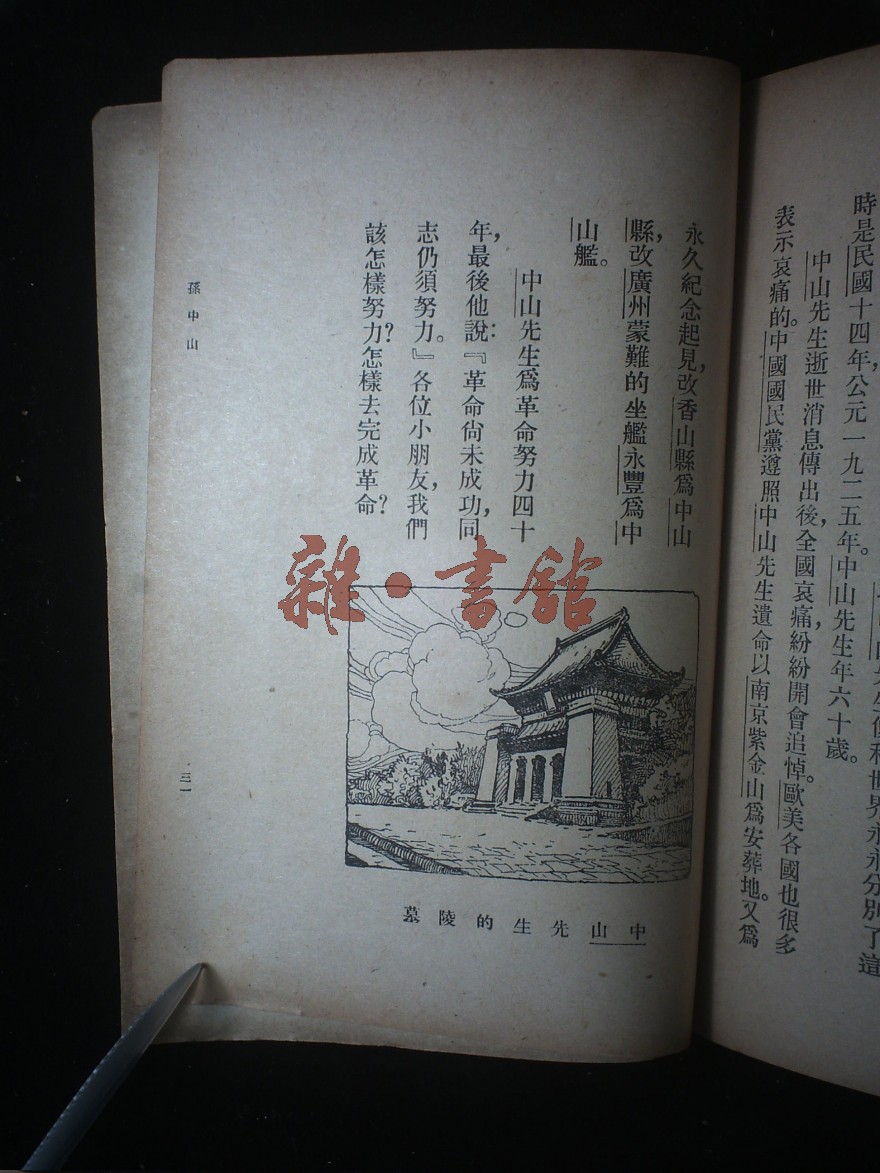 時是民國十四年,公元一九二五年。中山先生年六十歲。
中山先生逝世消息傳出後,全國哀痛,紛紛開會追悼。歐美各國也很多
表示哀痛的。中國國民黨遵照中山先生遺命以南京紫金山爲安葬地。又爲
永久紀念起見,改香山縣爲中山
縣,改廣州蒙難的坐艦永豐爲中
山艦。
中山先生爲革命努力四十
年,最後他說:『革命尙未成功,同
志仍須努力。』各位小朋友,我們
該怎樣努力?怎樣去完成革命?
中山先生的陵墓
孫中山
三一
雜·書館